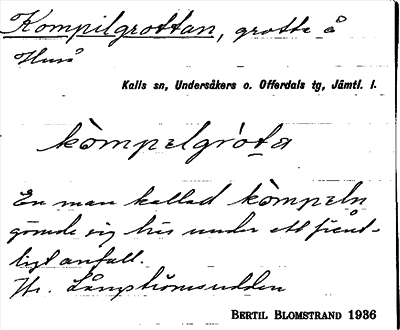 Kompilgrottan, grotta å
Huså
Kalls sn, Undersåkers o. Offerdals tg, Jämtl. l.
kòmpelgro̩ta
En man kallad kòmpeln
gömde sig här under ett fient-
ligt anfall.
Hr. Långströmsudden
BERTIL BLOMSTRAND 1936